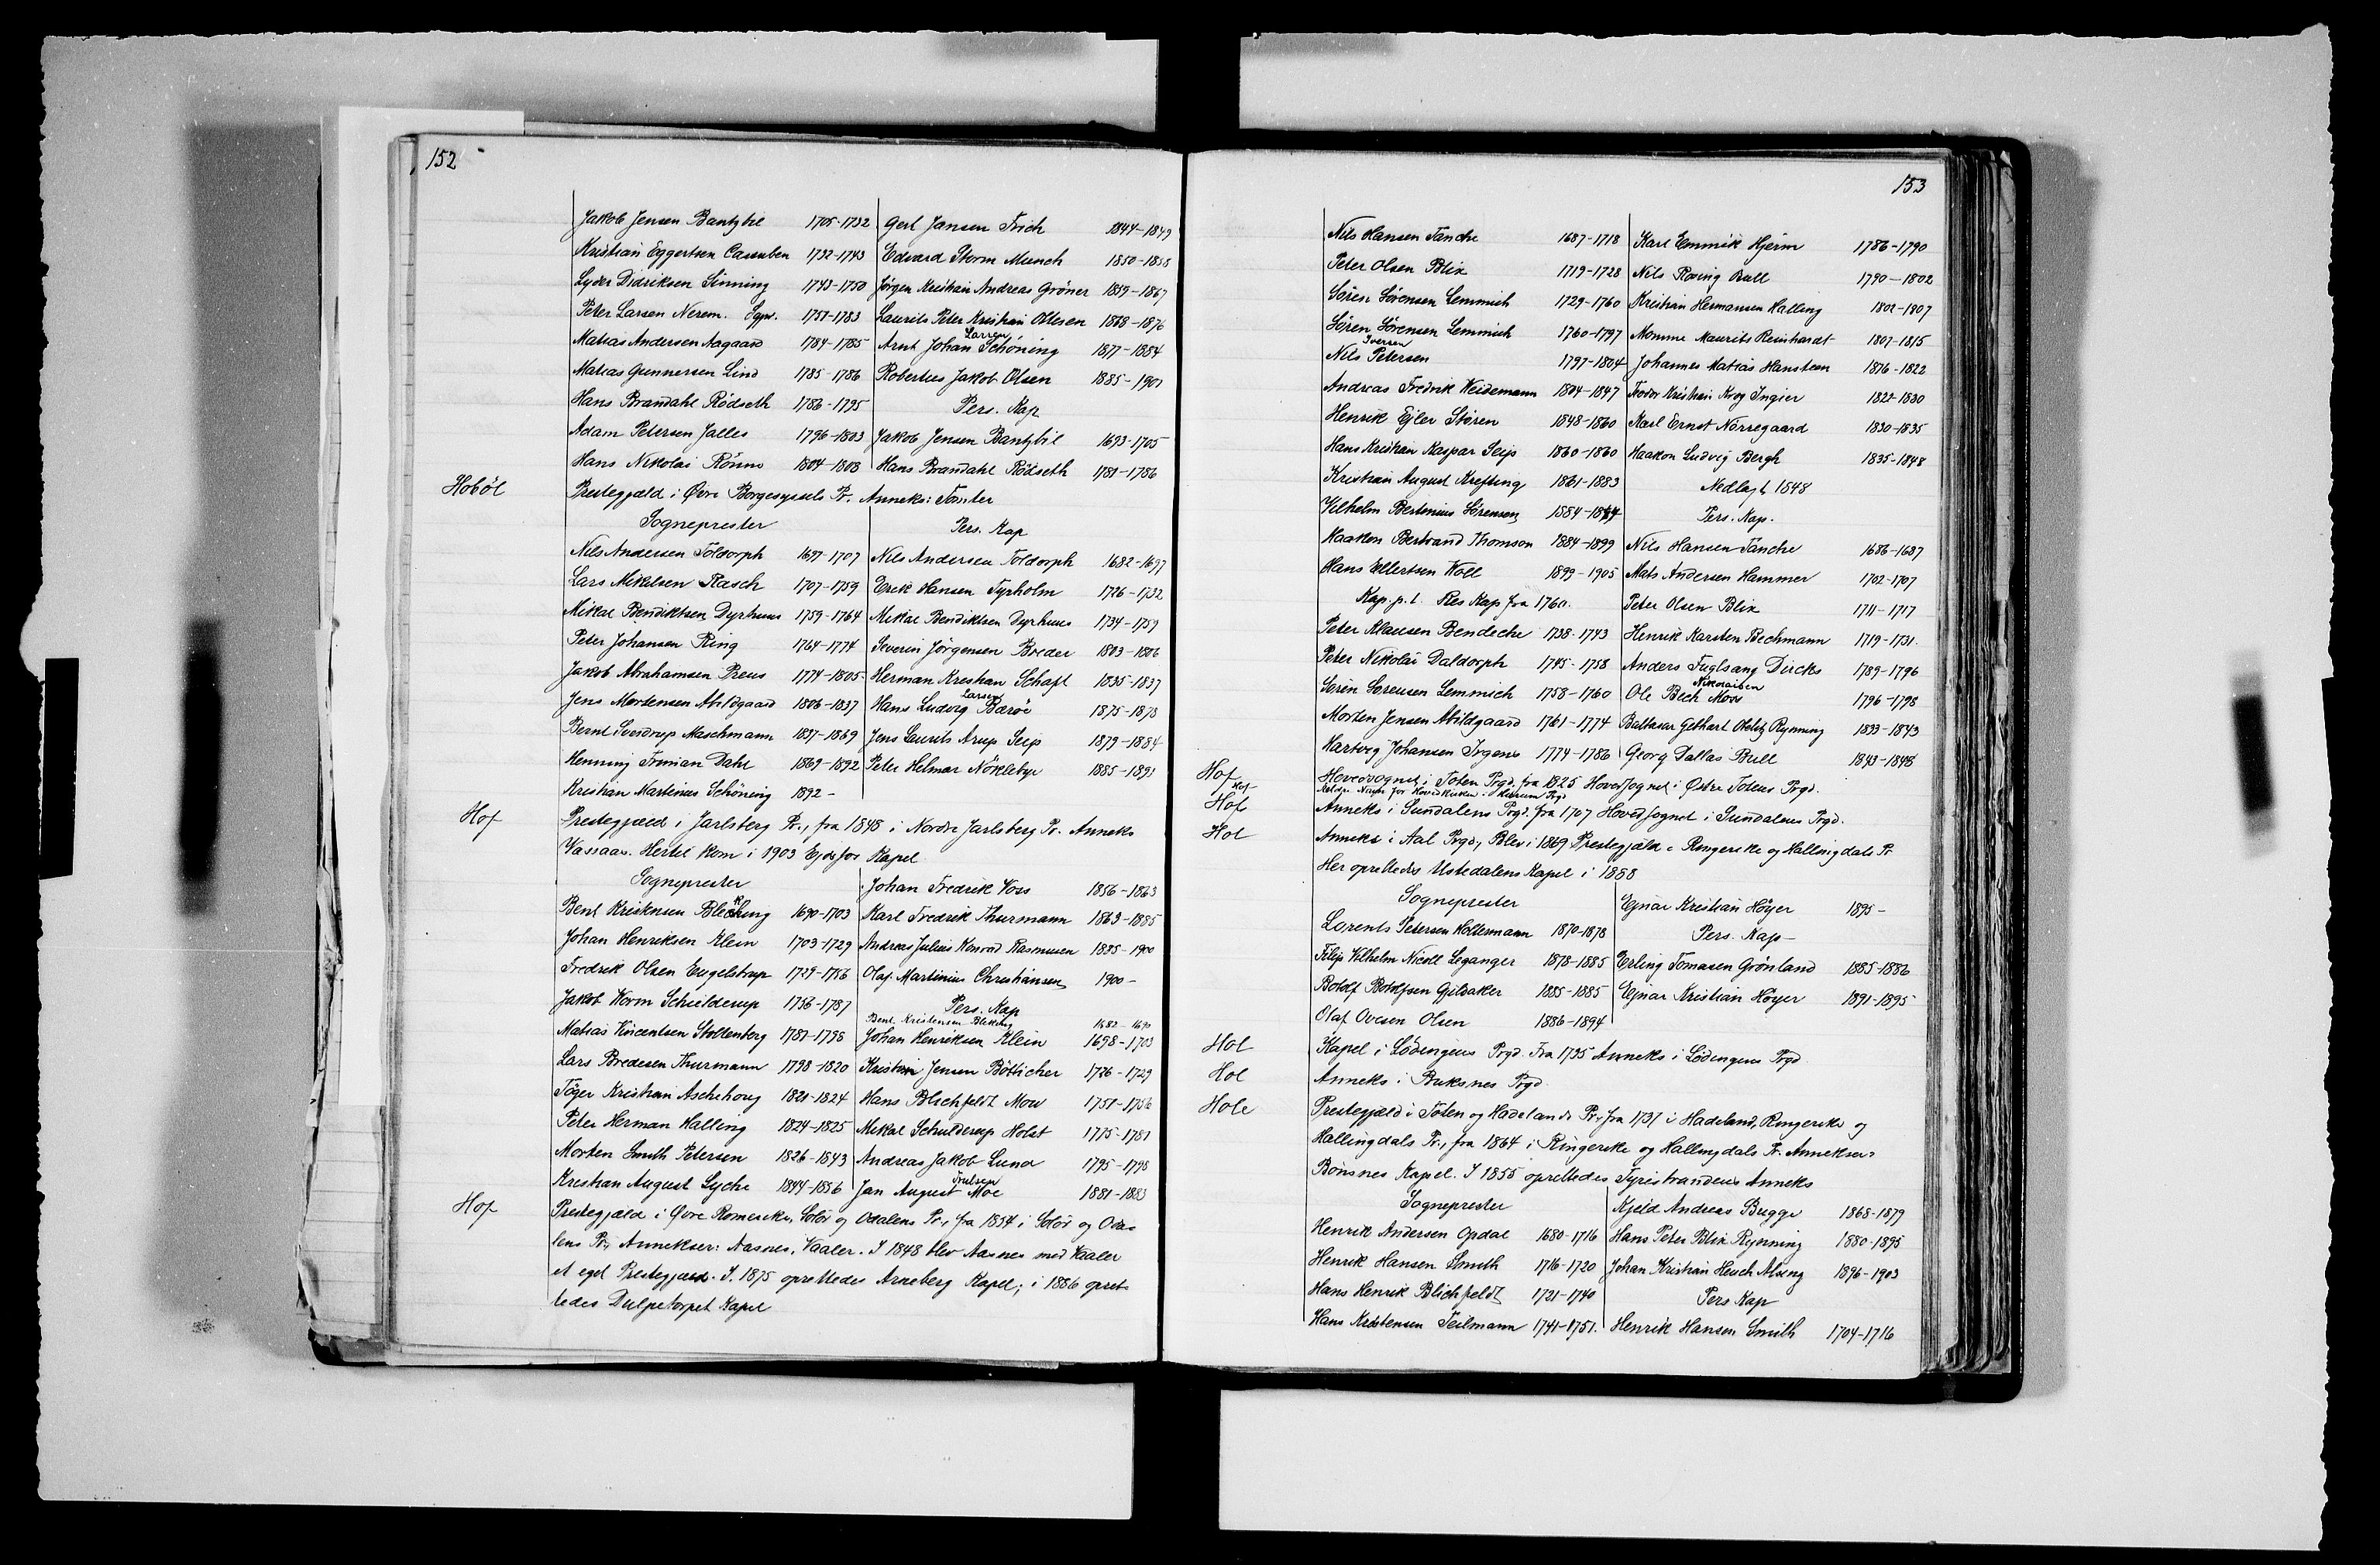 152
Jakob Jensen Bantzbil 1705-1732
Kristian Eggertsen Cassuben 1732-1743
Lyder Didriksen Sinning 1743-1750
Peter Larsen Nerem. Sgpr. 1751-1783
Matias Andersen Aagaard 1784-1785
Matias Gunnersen Lind 1785-1786
Hans Brandahl Rødseth 1786-1795
Adam Petersen Jalles 1796-1803
Hans Nikolai Rønne 1804-1808
Gerl Jansen Frich 1844-1849
Edvard Storm Munch 1850-1858
Jørgen Kristian Andreas Grøner 1859-1867
Laurits Peter Kristian Ottesen 1868-1876
Larsen
Arnt Johan Schöning 1877-1884
Robertus Jakob Olsen 1885-1901
Pers. Kap
Jakob Jensen Bantzbil 1693-1705
Hans Brandahl Rödseth 1781-1786
Hobøl
Prestegjæld i Øvre Borgesyssels Pr. Anneks: Tomter
Sogneprester
Nils Andersen Töldorph 1697-1707
Lars Mikelsen Rasch 1707-1759
Mikal Bendiktsen Dyrhuus 1759-1764
Peter Johansen Ring 1764-1774
Jakob Abrahamsen Preus 1774-1805
Jens Mortensen Abildgaard 1806-1837
Bernt Sverdrup Maschmann 1837-1869
Henning Frimian Dahl 1869-1892
Kristian Martinius Schöning 1892-
Pers. Kap
Nils Andersen Toldorph 1682-1697
Erik Hansen Tyrholm 1726-1732
Mikal Bendiktsen Dyrhuus 1734-1759
Severin Jörgensen Breder 1803-1806
Herman Kristian Schaft 1835-1837
Larsen
Hans Ludvig Bærøe 1875-1878
Jens Laurits Arup Seip 1879-1884
Peter Helmar Nöklebye 1885-1891
Hof
Prestegjæld i Jarlsberg Pr., fra 1848 i Nordre Jarlsberg Pr. Anneks
Vassaas. Hertil kom i 1903 Ejdsfos Kapel
Sogneprester
Bent Kristensen Bleking 1690-1703
Johan Henriksen Klein 1703-1729
Fredrik Olsen Engelstrup 1729-1756
Jakob Worm Schielderup 1756-1787
Matias Vincentsen Stoltenberg 1787-1798
Lars Bredesen Thurmann 1798-1820
Töger Kristian Aschehoug 1821-1824
Peter Herman Halling 1824-1825
Morten Smith Petersen 1826-1843
Kristian August Lyche 1844-1856
Johan Fredrik Voss 1856-1863
Karl Fredrik Thurmann 1863-1885
Andreas Julius Konrad Rasmusen 1885-1900
Olaf Martinius Christiansen 1900-
Pers. Kap
Bent Kristensen Bleking 1682-1690
Johan Henriksen Klein 1698-1703
Kristian Jensen Bötticher 1726-1729
Hans Blichfeldt Mow 1751-1756
Mikal Schielderup Holst 1775-1781
Andreas Jakob Lund 1795-1798
Trulsen
Jan August Moe 1881-1883
Hof
Prestegjæld i Øvre Romerike, Solör og Odalens Pr., fra 1854 i Solör og Oda-
lens Pr. Annekser: Aasnes, Vaaler. I 1848 blev Aasnes med Vaaler
et eget Prestegjæld. I 1875 oprettedes Arneberg Kapel; i 1886 opret-
tedes Dulpetorpet Kapel
153
Nils Hansen Tanche 1687-1718
Peter Olsen Blix 1719-1728
Sören Sörensen Lemmich 1729-1760
Sören Sörensen Lemmich 1760-1797
Iversen
Nils Petersen 1797-1804
Andreas Fredrik Weidemann 1804-1847
Henrik Ejler Stören 1848-1860
Hans Kristian Kaspar Seip 1860-1860
Kristian August Krefting 1861-1883
Vilhelm Bertinius Sörensen 1884-1884
Haakon Bertrand Thomson 1884-1899
Hans Ellertsen Woll 1899-1905
Kap. p. l. Res Kap fra 1760.
Peter Klausen Bendeche 1738-1743
Peter Nikolai Daldorph 1745-1758
Sören Sörensen Lemmich 1758-1760
Morten Jensen Abildgaard 1761-1774
Hartvig Johansen Irgens 1774-1786
Karl Emmik Hjerm 1786-1790
Nils Rosing Bull 1790-1802
Kristian Hermansen Halling 1802-1807
Momme Maurits Reinhardt 1807-1815
Johannes Matias Hansteen 1816-1822
Fredor Kristian Krog Ingier 1822-1830
Karl Ernst Nörregaard 1830-1835
Haakon Ludvig Bergh 1835-1848
Nedlagt 1848
Pers. Kap.
Nils Hansen Tanche 1686-1687
Mats Andersen Hammer 1702-1707
Peter Olsen Blix 1711-1717
Henrik Karsten Bechmann 1719-1731
Anders Fuglsang Dircks 1789-1796
Nikolaisen
Ole Bech Moss 1796-1798
Baltasar Gebhart Rynning 1833-1843
Georg Dallas Bull 1843-1848
Hof
Hovedsognet i Toten Prgd, fra 1825 Hovedsognet i Østre Totens Prgd.
Hof
Hof
Anneks i Sundalens Prgd. fra 1707 Hovedsognet i Sundalens Prgd.
Hol
Anneks i Aal Prgd., Blev i 1869 Prestegjæld i Ringerike og Hallingdals Pr
Her oprettedes Ustedalens Kapel i 1888
Sogneprester
Lorents Petersen Koltermann 1870-1878
Filip Vilhelm Nicoll Leganger 1878-1885
Botolf Botolfsen Gjelsaker 1885-1885
Olaf Ovesen Olsen 1886-1894
Ejnar Kristian Höyer 1895-
Pers. Kap-
Erling Tomasen Grönland 1885-1886
Ejnar Kristian Höyer 1891-1895
Hol
Kapel i Lödingens Prgd. Fra 1795 Anneks i Lödingens Prgd
Hol
Anneks i Buksnes Prgd
Hole
Prestegjæld i Toten og Hadelands Pr., fra 1731 i Hadeland, Ringerike og
Hallingdals Pr., fra 1864 i Ringerike og Hallingdals Pr. Annekser:
Bönsnes Kapel. I 1855 oprettedes Tyristrandens Anneks
Sogneprester
Henrik Andersen Opdal 1680-1716
Henrik Hansen Smith 1716-1720
Hans Henrik Blichfeldt 1721-1740
Hans Kristensen Teilmann 1741-1751.
Kjeld Andreas Bugge 1868-1879
Hans Peter Blix Rynning 1880-1895
Johan Kristian Heuch Alsing 1896-1903
Pers Kap
Henrik Hansen Smith 1704-1716